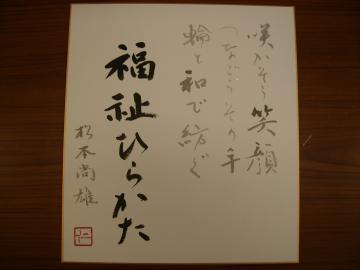 咲かそう笑顔
つなごうその手
輪と和で紡ぐ
福祉ひらかた
松本尚雄